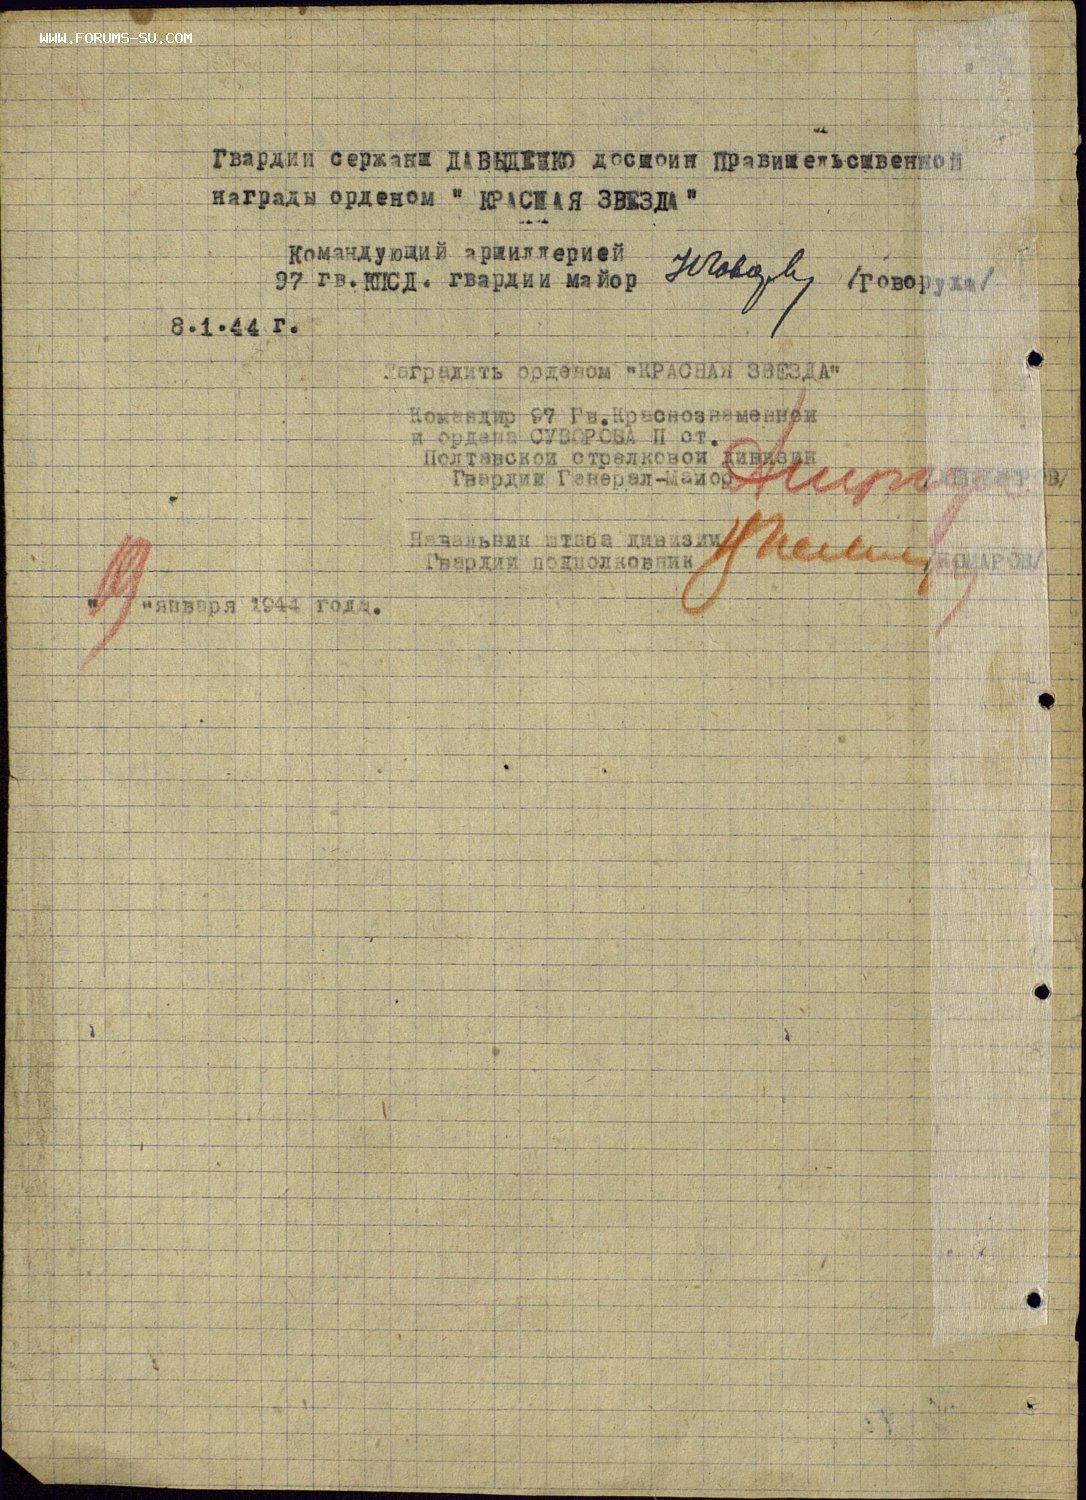 WWW.FORUMS-SU.COM
Гвардии сержант ДАВЫДЕНКО достоин Правительственной
награды орденом " КРАСНАЯ ЗВЕЗДА"
Командующий артиллерией
97 гв.КПСД. гвардии майор /Говоруха/
8.1.44 г.
Наградить орденом "КРАСНАЯ ЗВЕЗДА"
Командир 97 Гв.Краснознаменной
и ордена СУВОРОВА П ст.
Полтавской стрелковой дивизии
Гвардии Генерал-Майор
Начальник штаба дивизии
Гвардии подполковник /КОМАРОВ/
" "января 1944 года.